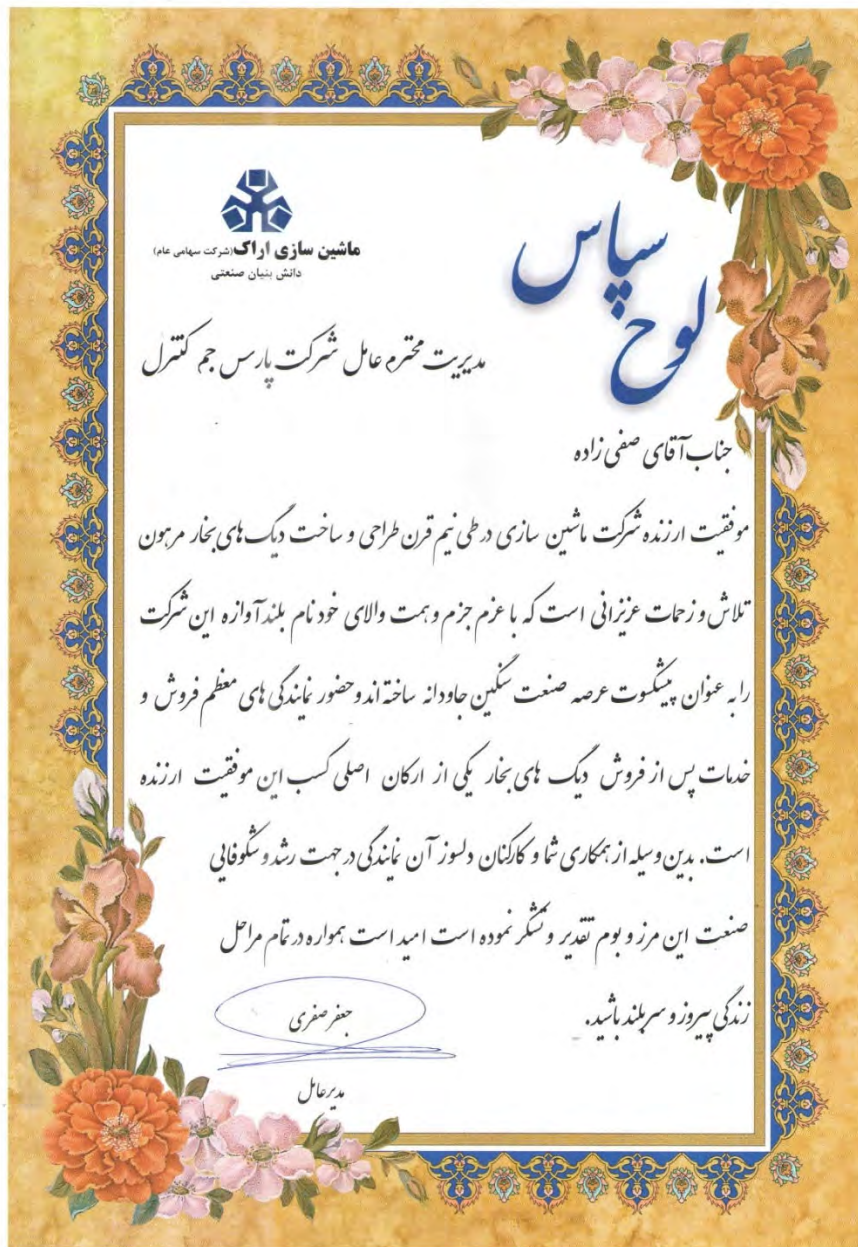 ماشین سازی اراک (شرکت سهامی عام)
دانش بنیان صنعتی
لوح سپاس
مدیریت محترم عامل شرکت پارس جم کنترل
جناب آقای صفی زاده
موفقیت ارزنده شرکت ماشین سازی در طی نیم قرن طراحی و ساخت دیگ های بخار مرهون
تلاش و زحمات عزیزانی است که با عزم جزم و همت والای خود نام بلند آوازه این شرکت
را به عنوان پیشکسوت عرصه صنعت سنگین جاودانه ساخته اند و حضور نمایندگی های معظم فروش و
خدمات پس از فروش دیگ های بخار یکی از ارکان اصلی کسب این موفقیت ارزنده
است. بدین وسیله از همکاری شما و کارکنان دلسوز آن نمایندگی در جهت رشد و شکوفایی
صنعت این مرز و بوم تقدیر و تشکر نموده است امید است همواره در تمام مراحل
زندگی پیروز و سربلند باشید.
جعفر صفری
مدیر عامل